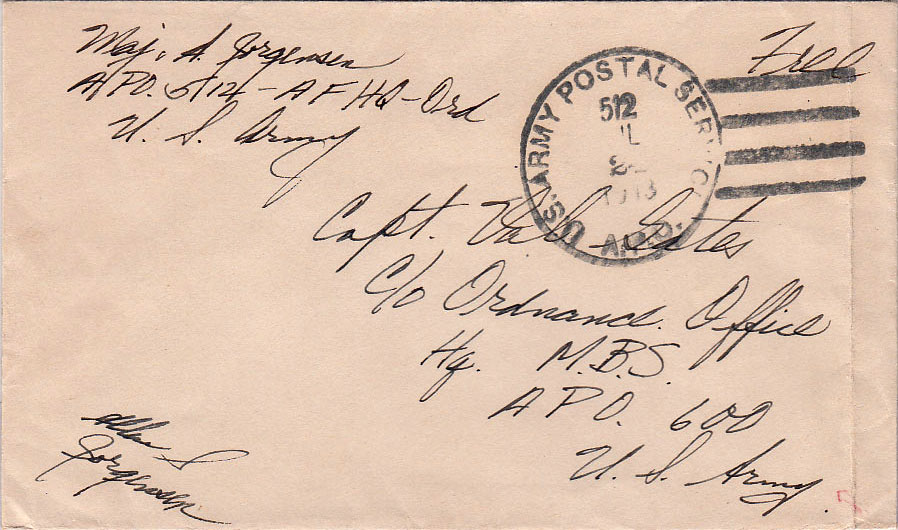 Maj. A. Jorgensen
APO. 512 - AFHQ - Ord
U. S. Army
Free
U.S. ARMY POSTAL SERVICE
512
A.P.O.
Capt. Gates
c/o Ordnance Office
Hq. M.B.S.
A P O. 600
U. S. Army.
Allan S
Jorgensen